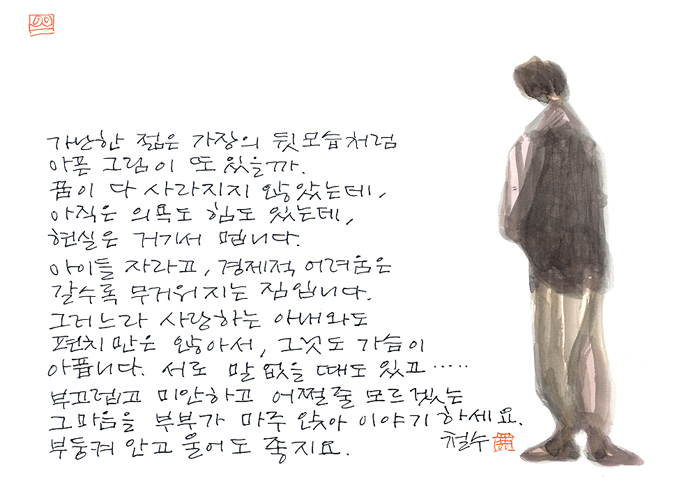 가난한 젊은 가장의 뒷모습처럼
아픈 그림이 또 있을까.
꿈이 다 사라지지 않았는데,
아직은 의욕도 힘도 있는데,
현실은 거기서 멉니다.
아이들 자라고, 경제적 어려움은
갈수록 무거워지는 짐입니다.
그러느라 사랑하는 아내와도
편치만은 않아서, 그것도 가슴이
아픕니다. 서로 말 없을 때도 있고·····
부끄럽고 미안하고 어쩔줄 모르겠는
그마음을 부부가 마주 앉아 이야기 하세요.
부둥켜 안고 울어도 좋지요.
철수